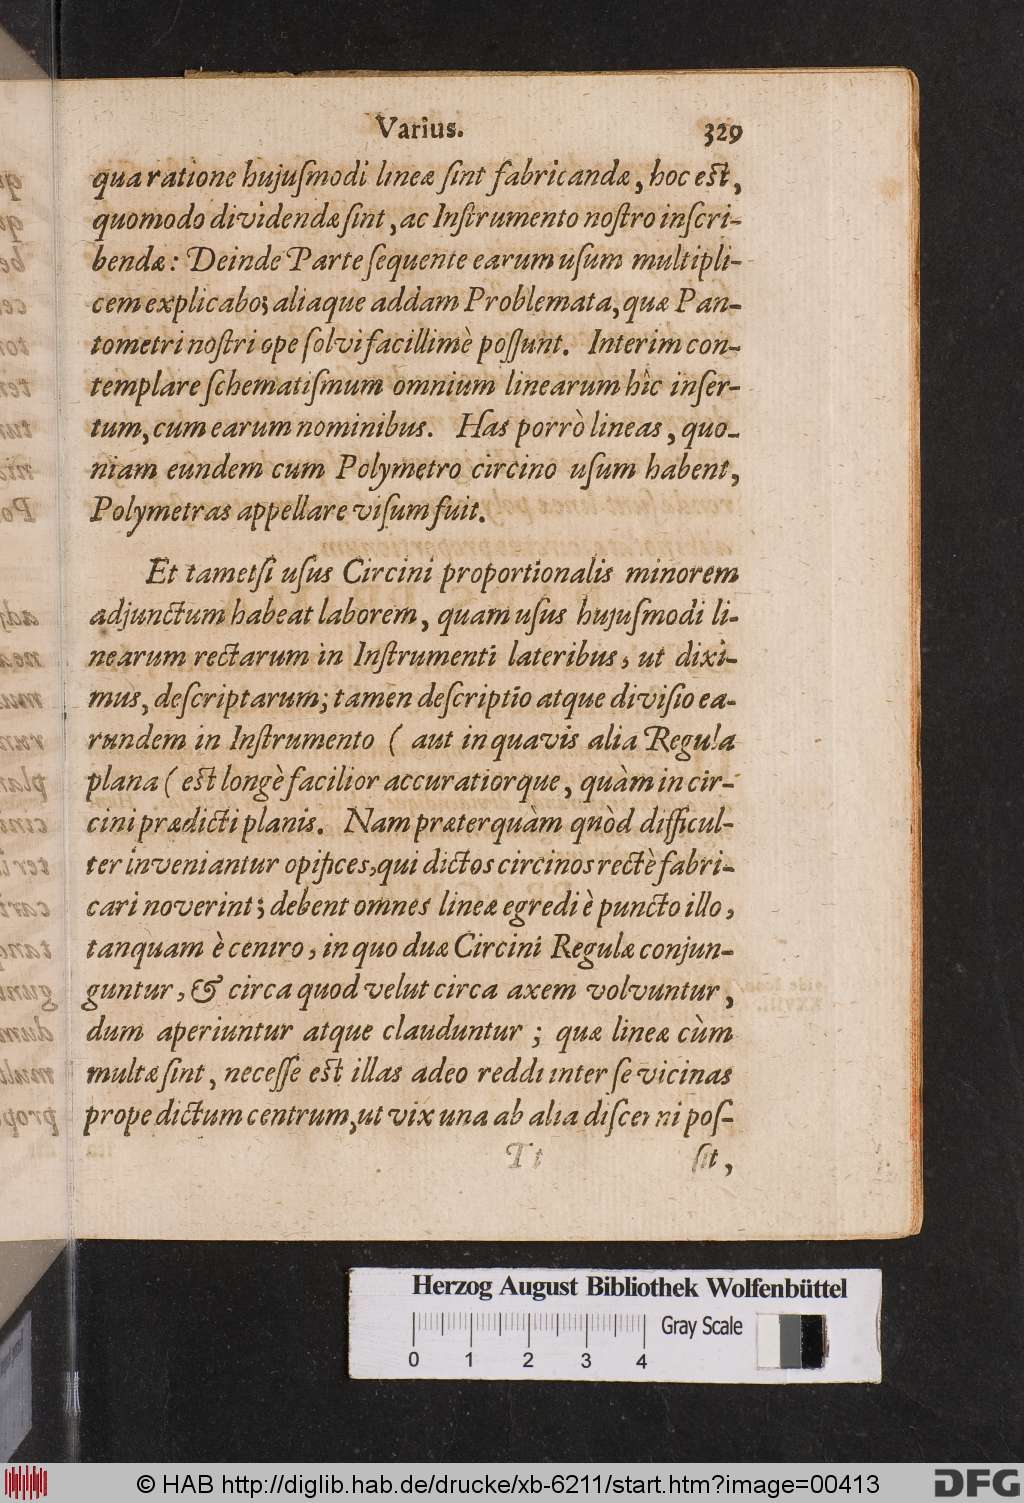 Varius. 329
qua ratione hujuſmodi lineæ ſint fabricandæ, hoc eſt,
quomodo dividendæ ſint, ac Inſtrumento noſtro inſcri-
bendæ: Deinde Parte ſequente earum uſum multipli-
cem explicabo; aliaque addam Problemata, quæ Pan-
tometri noſtri ope ſolvi facillimè poſſunt. Interim con-
templare ſchematiſmum omnium linearum hîc inſer-
tum, cum earum nominibus. Has porrò lineas, quo-
niam eundem cum Polymetro circino uſum habent,
Polymetras appellare viſum fuit.
Et tametſi uſus Circini proportionalis minorem
adjunctum habeat laborem, quam uſus hujuſmodi li-
nearum rectarum in Inſtrumenti lateribus, ut dixi-
mus, deſcriptarum; tamen deſcriptio atque diviſio ea-
rundem in Inſtrumento ( aut in quavis alia Regula
plana ( eſt longè facilior accuratiorque, quàm in cir-
cini prædicti planis. Nam præterquàm quòd difficul-
ter inveniantur opifices, qui dictos circinos rectè fabri-
cari noverint; debent omnes lineæ egredi è puncto illo,
tanquam è centro, in quo duæ Circini Regulæ conjun-
guntur, & circa quod velut circa axem volvuntur,
dum aperiuntur atque clauduntur ; quæ lineæ cùm
multæ ſint, neceſſe eſt illas adeo reddi inter ſe vicinas
prope dictum centrum, ut vix una ab alia diſcerni poſ-
Tt ſit,
Herzog August Bibliothek Wolfenbüttel
Gray Scale
0 1 2 3 4
© HAB http://diglib.hab.de/drucke/xb-6211/start.htm?image=00413
DFG